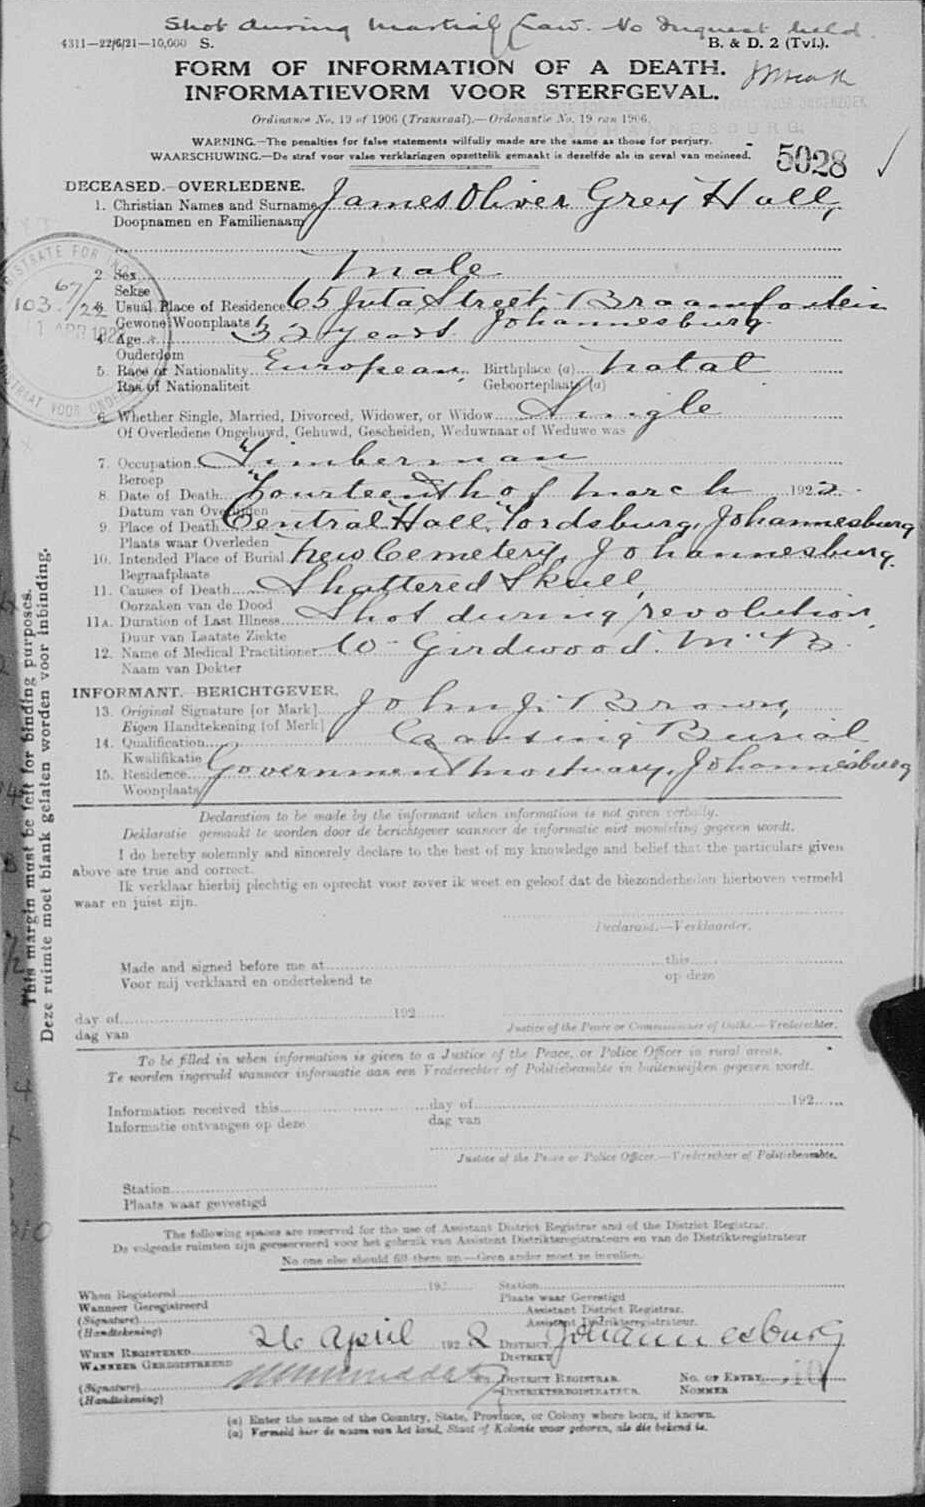 Shot during Martial Law. No Inquest held.
4311—22/6/21—10,000 S. B. & D. 2 (Tvl.).
FORM OF INFORMATION OF A DEATH.
INFORMATIEVORM VOOR STERFGEVAL.
Ordinance No. 19 of 1906 (Transvaal).—Ordonantie No. 19 van 1906.
JOHANNESBURG
WARNING.—The penalties for false statements wilfully made are the same as those for perjury.
WAARSCHUWING.—De straf voor valse verklaringen opzettelik gemaakt is dezelfde als in geval van meineed.
5028
DECEASED.—OVERLEDENE.
1. Christian Names and Surname James Oliver Grey Hall,
Doopnamen en Familienaam
2. Sex Male
Sekse
3. Usual Place of Residence 65 Juta Street, Braamfontein
Gewone Woonplaats Johannesburg.
4. Age 32 years
Ouderdom
5. Race or Nationality European. Birthplace (a) Natal
Ras of Nationaliteit Geboorteplaats (a)
6. Whether Single, Married, Divorced, Widower, or Widow Single
Of Overledene Ongehuwd, Gehuwd, Gescheiden, Weduwnaar of Weduwe was
7. Occupation Timberman
Beroep
8. Date of Death Fourteenth of March 1922.
Datum van Overlijden
9. Place of Death Central Hall, Fordsburg, Johannesburg
Plaats waar Overleden
10. Intended Place of Burial New Cemetery, Johannesburg.
Begraafplaats
11. Causes of Death Shattered Skull,
Oorzaken van de Dood
11A. Duration of Last Illness Shot during revolution.
Duur van Laatste Ziekte
12. Name of Medical Practitioner W Girdwood. M.B.
Naam van Dokter
INFORMANT.—BERICHTGEVER.
13. Original Signature [or Mark] John J. Brown,
Eigen Handtekening [of Merk]
14. Qualification Causing Burial
Kwalifikatie
15. Residence Government Mortuary, Johannesburg
Woonplaats
Declaration to be made by the informant when information is not given verbally.
Deklaratie gemaakt te worden door de berichtgever wanneer de informatie niet mondeling gegeven wordt.
I do hereby solemnly and sincerely declare to the best of my knowledge and belief that the particulars given
above are true and correct.
Ik verklaar hierbij plechtig en oprecht voor zover ik weet en geloof dat de biezonderheden hierboven vermeld
waar en juist zijn.
Declarant.—Verklaarder.
Made and signed before me at this
Voor mij verklaard en ondertekend te op deze
day of 192
dag van
Justice of the Peace or Commissioner of Oaths.—Vrederechter.
To be filled in when information is given to a Justice of the Peace, or Police Officer in rural areas.
Te worden ingevuld wanneer informatie aan een Vrederechter of Politiebeambte in buitenwijken gegeven wordt.
Information received this day of 192
Informatie ontvangen op deze dag van
Justice of the Peace or Police Officer.—Vrederechter of Politiebeambte.
Station
Plaats waar gevestigd
The following spaces are reserved for the use of Assistant District Registrar and of the District Registrar.
De volgende ruimten zijn gereserveerd voor het gebruik van Assistent Distrikteregistrateurs en van de Distrikteregistrateur
No one else should fill them up.—Geen ander moet ze invullen.
When Registered 192 Station
Wanneer Geregistreerd Plaats waar Gevestigd
(Signature) Assistant District Registrar.
(Handtekening) Assistent Distrikteregistrateur.
WHEN REGISTERED 26 April 1922 DISTRICT Johannesburg
WANNEER GEREGISTREERD DISTRIKT
(Signature) DISTRICT REGISTRAR NO. OF ENTRY
(Handtekening) DISTRIKTEREGISTRATEUR NOMMER
(a) Enter the name of the Country, State, Province, or Colony where born, if known.
(a) Vermeld hier de naam van het land, Staat of Kolonie waar geboren, als die bekend is.
This margin must be left for binding purposes.
Deze ruimte moet blank gelaten worden voor inbinding.